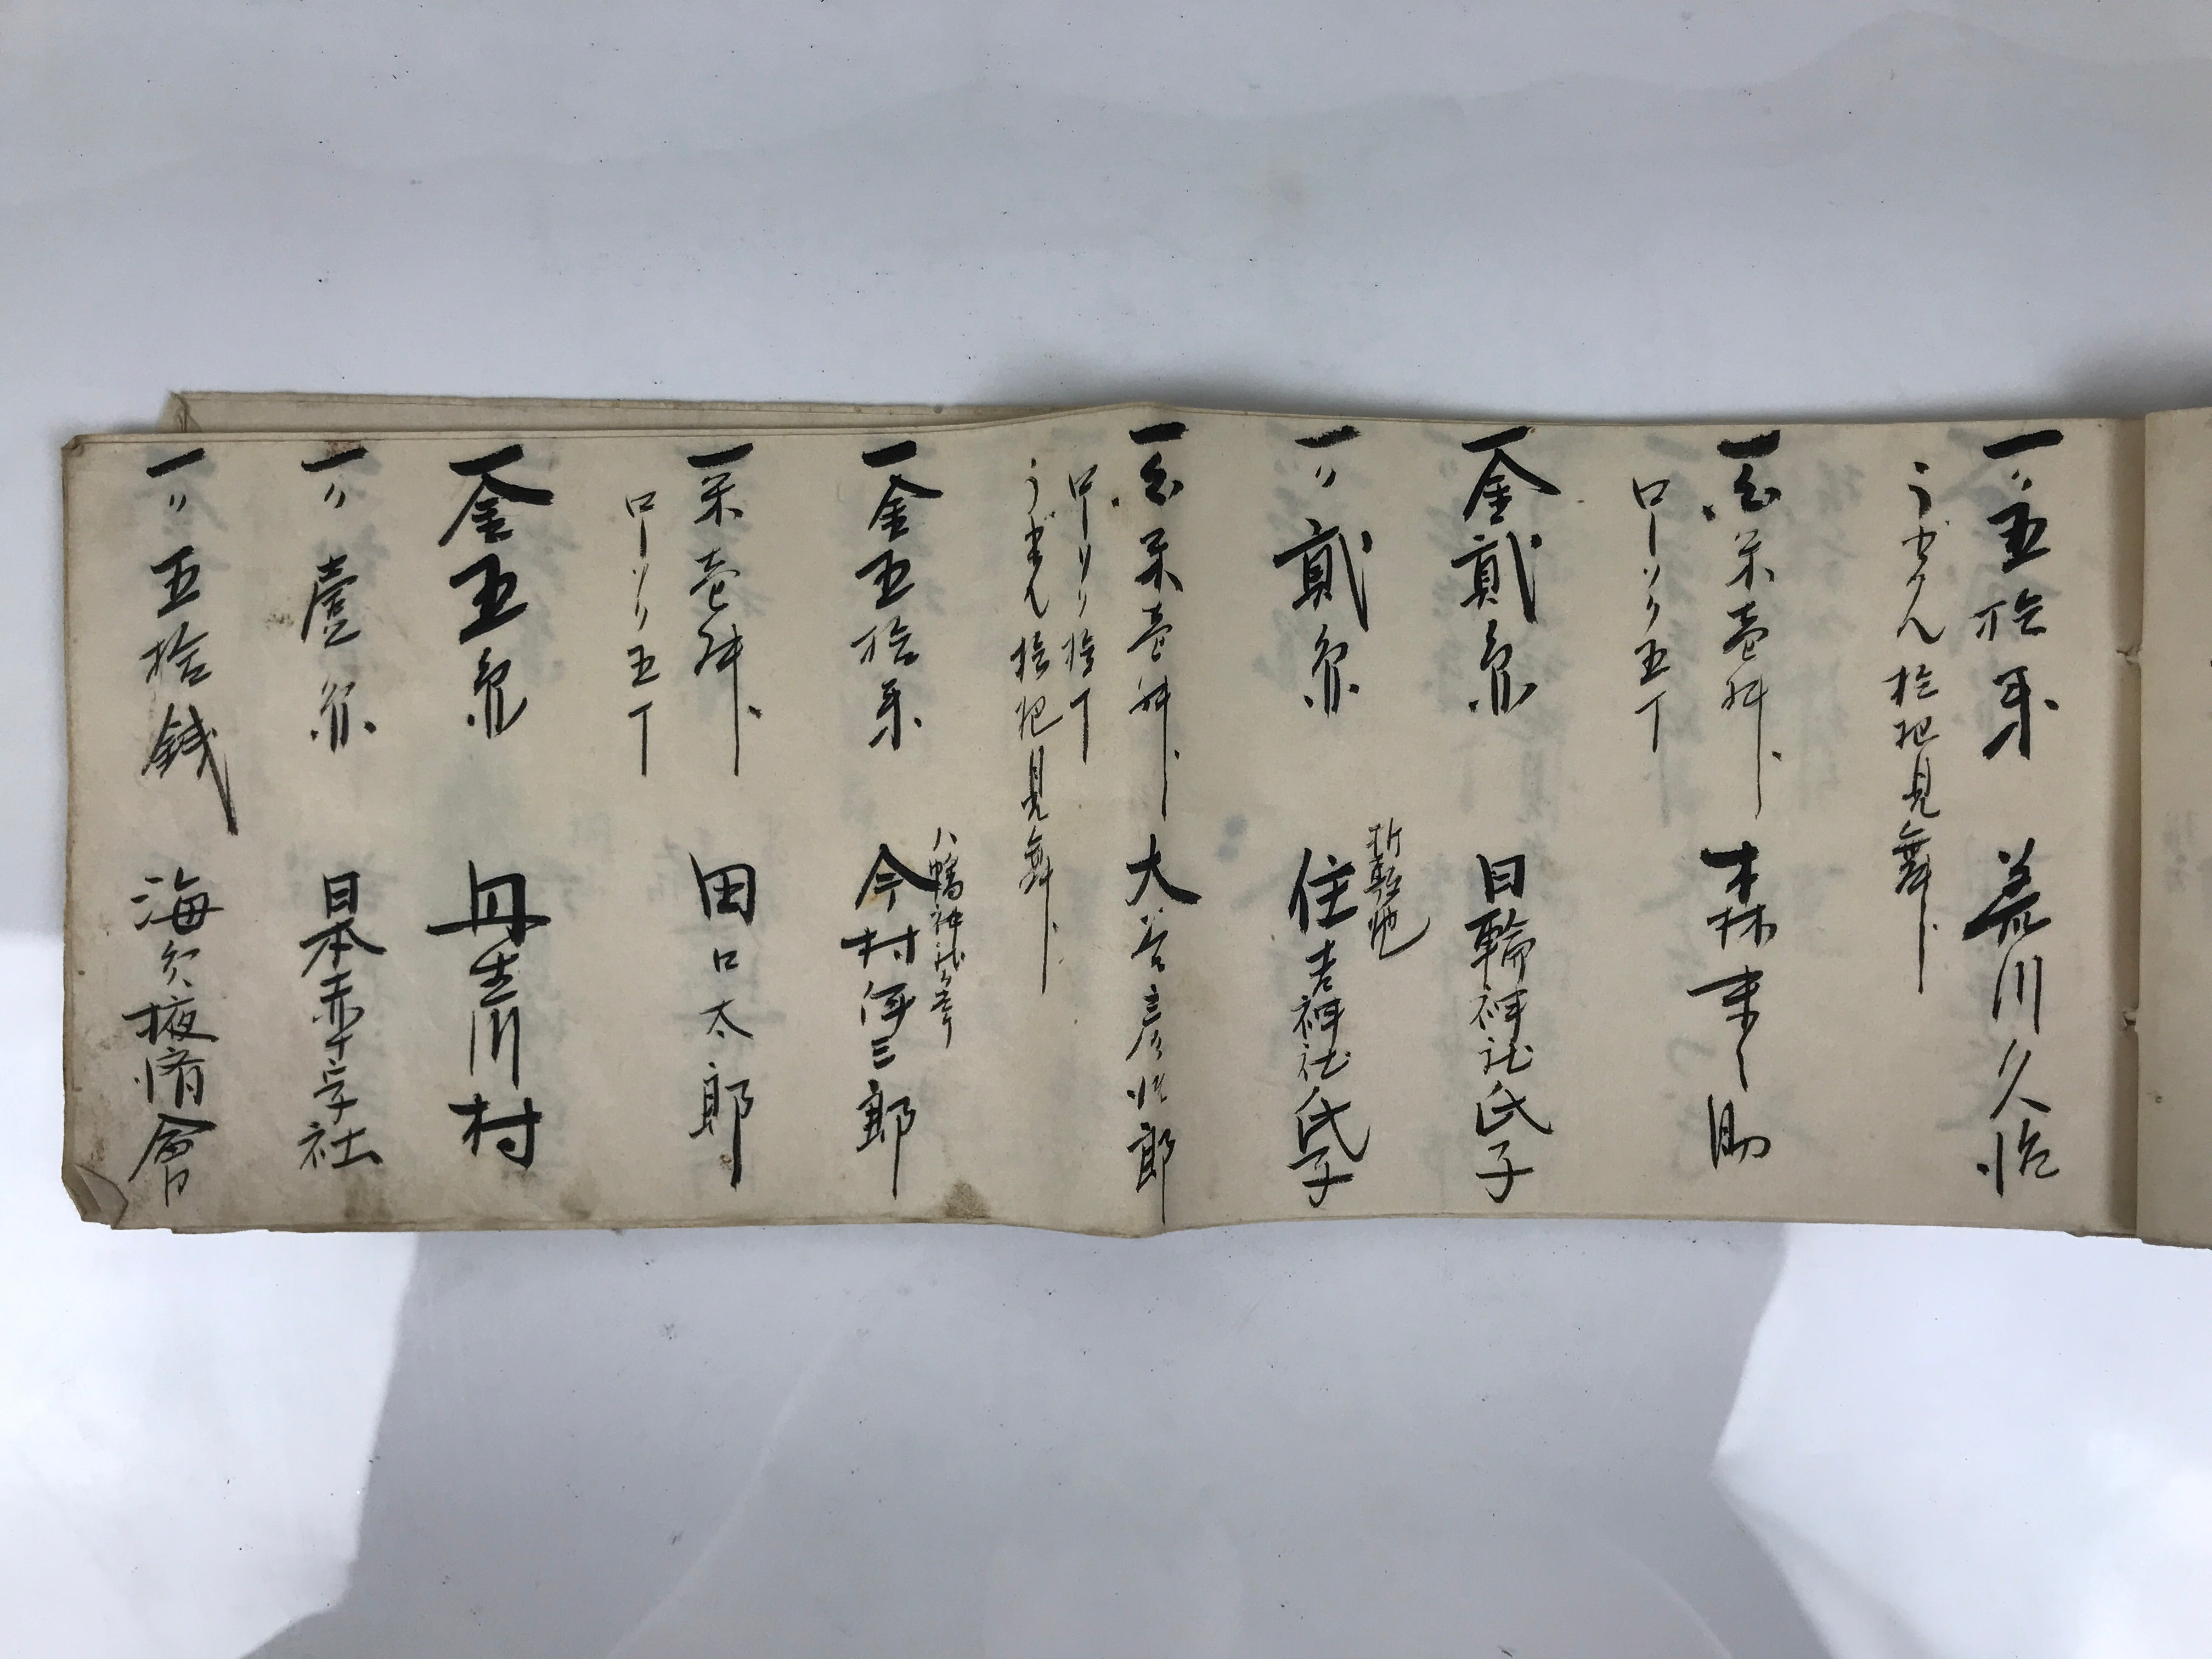 一〃五拾銭 荒川久治
うどん拾把見舞
一白米壱舛 森末之助
ローソク五丁
一金貳円 日輪神社氏子
一〃貳円 折敷地 住吉神社氏子
一白米壱舛 大谷彦次郎
ローソク拾丁
うどん拾把見舞
八幡神社
一金五拾銭 今村伊三郎
一米壱舛 田口太郎
ローソク五丁
一金五円 丹生川村
一〃壹円 日本赤十字社
一〃五拾銭 海員掖済會